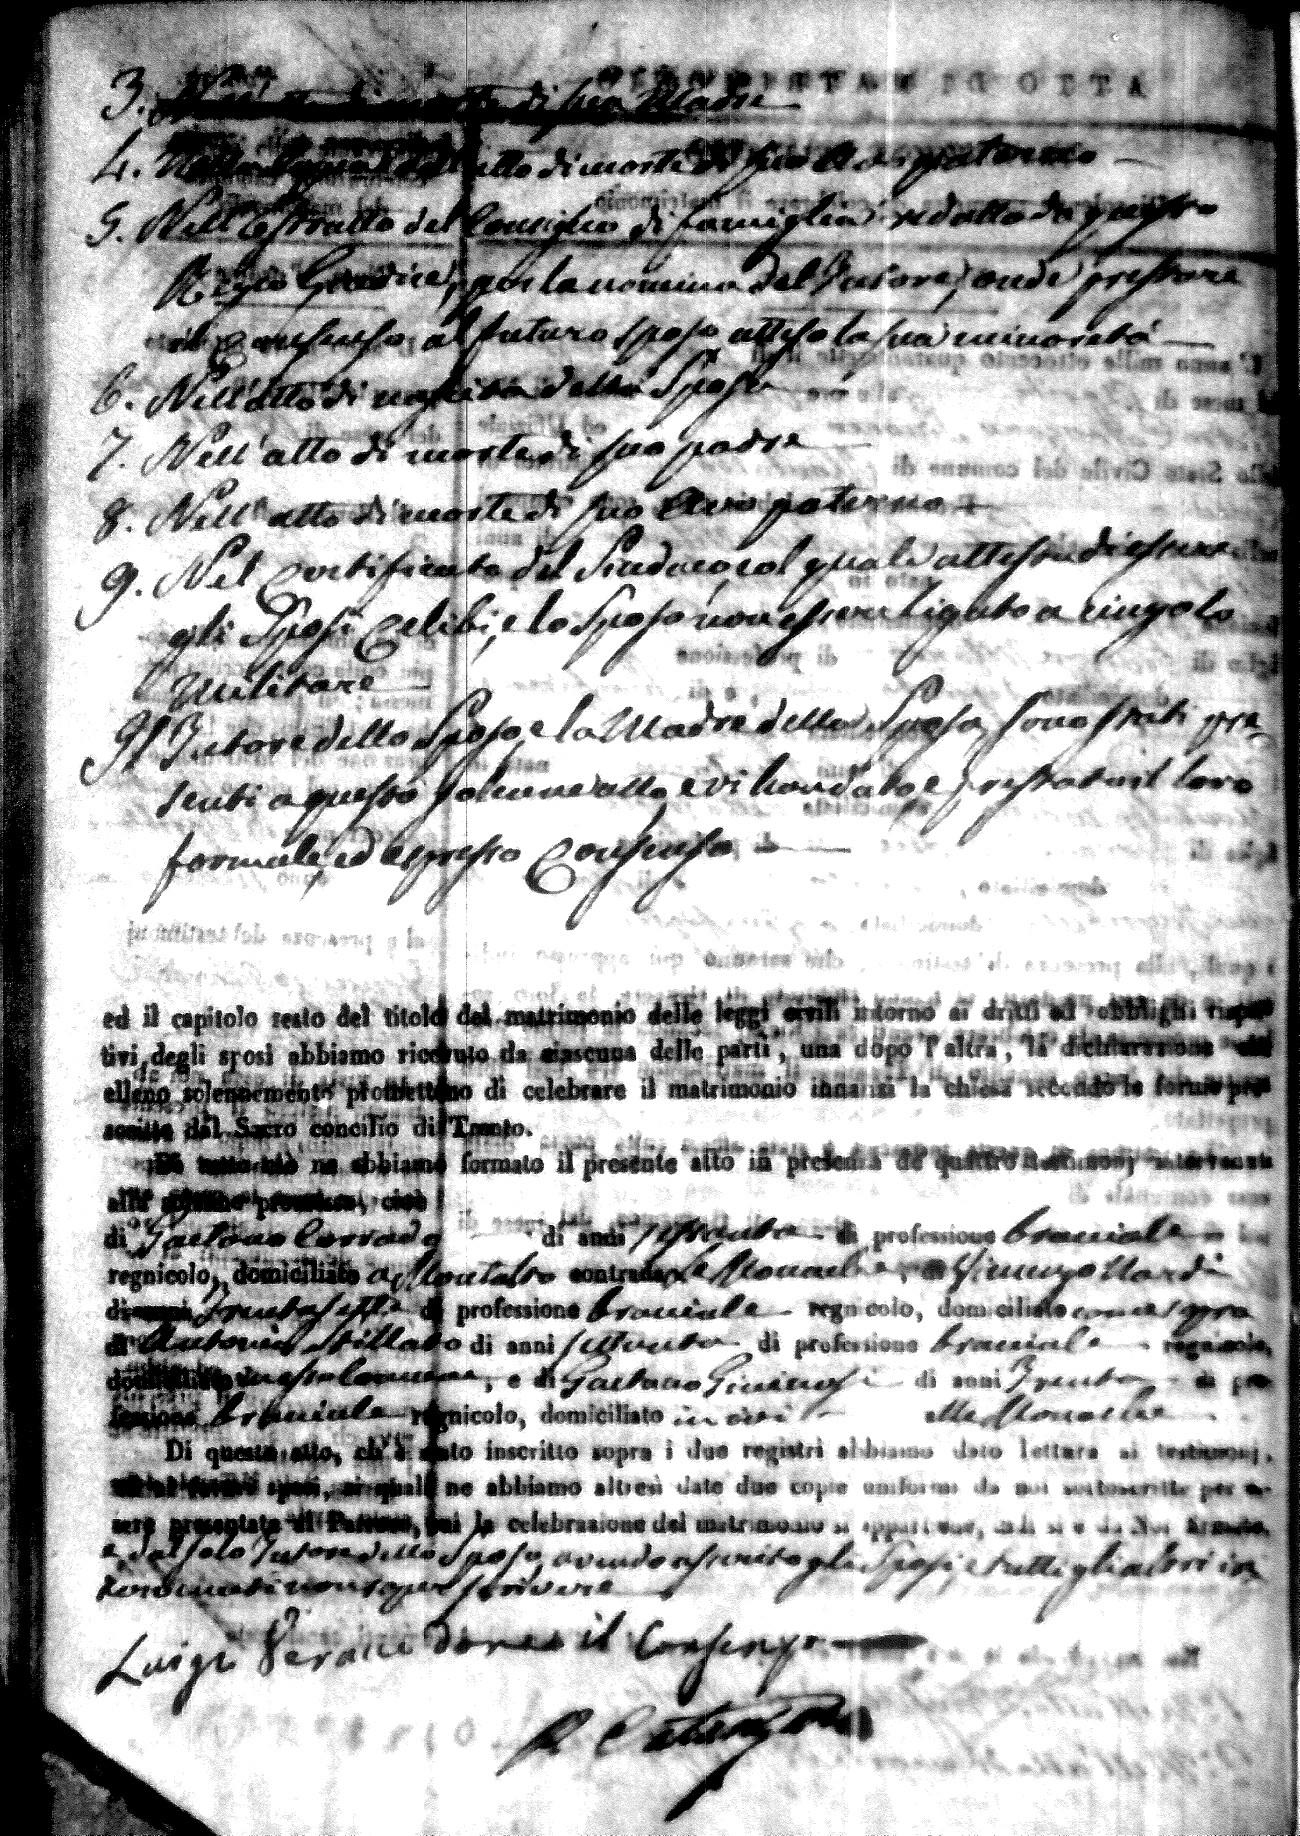 3. di sua Madre
4. atto di morte di suo Avo paterno
5. Nell'Estratto del Consiglio di famiglia redatto da questo
Regio Giudice, per la nomina del Tutore, onde prestare
il Consenso al futuro sposo atteso la sua minorità
6. Nell'atto di nascita della Sposa
7. Nell'atto di morte di suo padre
8. Nell'atto di morte di suo Avo paterno
9. Nel Certificato del Sindaco, col quale attesta di essere
gli Sposi Celibi, e lo Sposo non essere ligato a vincolo
militare
Il Tutore dello Sposo e la Madre della Sposa sono stati pre-
senti a questo solenne atto, e vi han dato e prestato il loro
formale, ed espresso Consenso
ed il capitolo sesto del titolo del matrimonio delle leggi civili intorno ai dritti ed obblighi rispet-
tivi degli sposi abbiamo ricevuto da ciascuna delle parti, una dopo l'altra, la dichiarazione che
elleno solennemente promettono di celebrare il matrimonio innanzi la chiesa secondo le forme pre-
scritte dal Sacro concilio di Trento.
Di tutto ciò ne abbiamo formato il presente atto in presenza de' quattro testimonj intervenuti
alla solenne promessa, cioè
di Gaetano Corrado di anni sessanta di professione bracciale
regnicolo, domiciliato a Montalto contrada le Monache, di Vincenzo Nardi
di anni Trentasette di professione bracciale regnicolo, domiciliato come sopra
di Antonio Stillato di anni settanta di professione bracciale regnicolo,
domiciliato in esso Comune, e di Gaetano di anni Trenta di pro-
fessione bracciale regnicolo, domiciliato in alle Monache
Di questo atto, ch'è stato inscritto sopra i due registri abbiamo dato lettura ai testimonj,
ed ai futuri sposi, ai quali ne abbiamo altresì date due copie uniformi da noi sottoscritte per es-
sere presentate al Parroco, cui la celebrazione del matrimonio si appartiene, indi si è da Noi firmato,
e dal solo Tutore dello Sposo, avendo asserito gli Sposi, e tutti gli altri in-
tervenuti non saper scrivere
Luigi Verace il Consenso